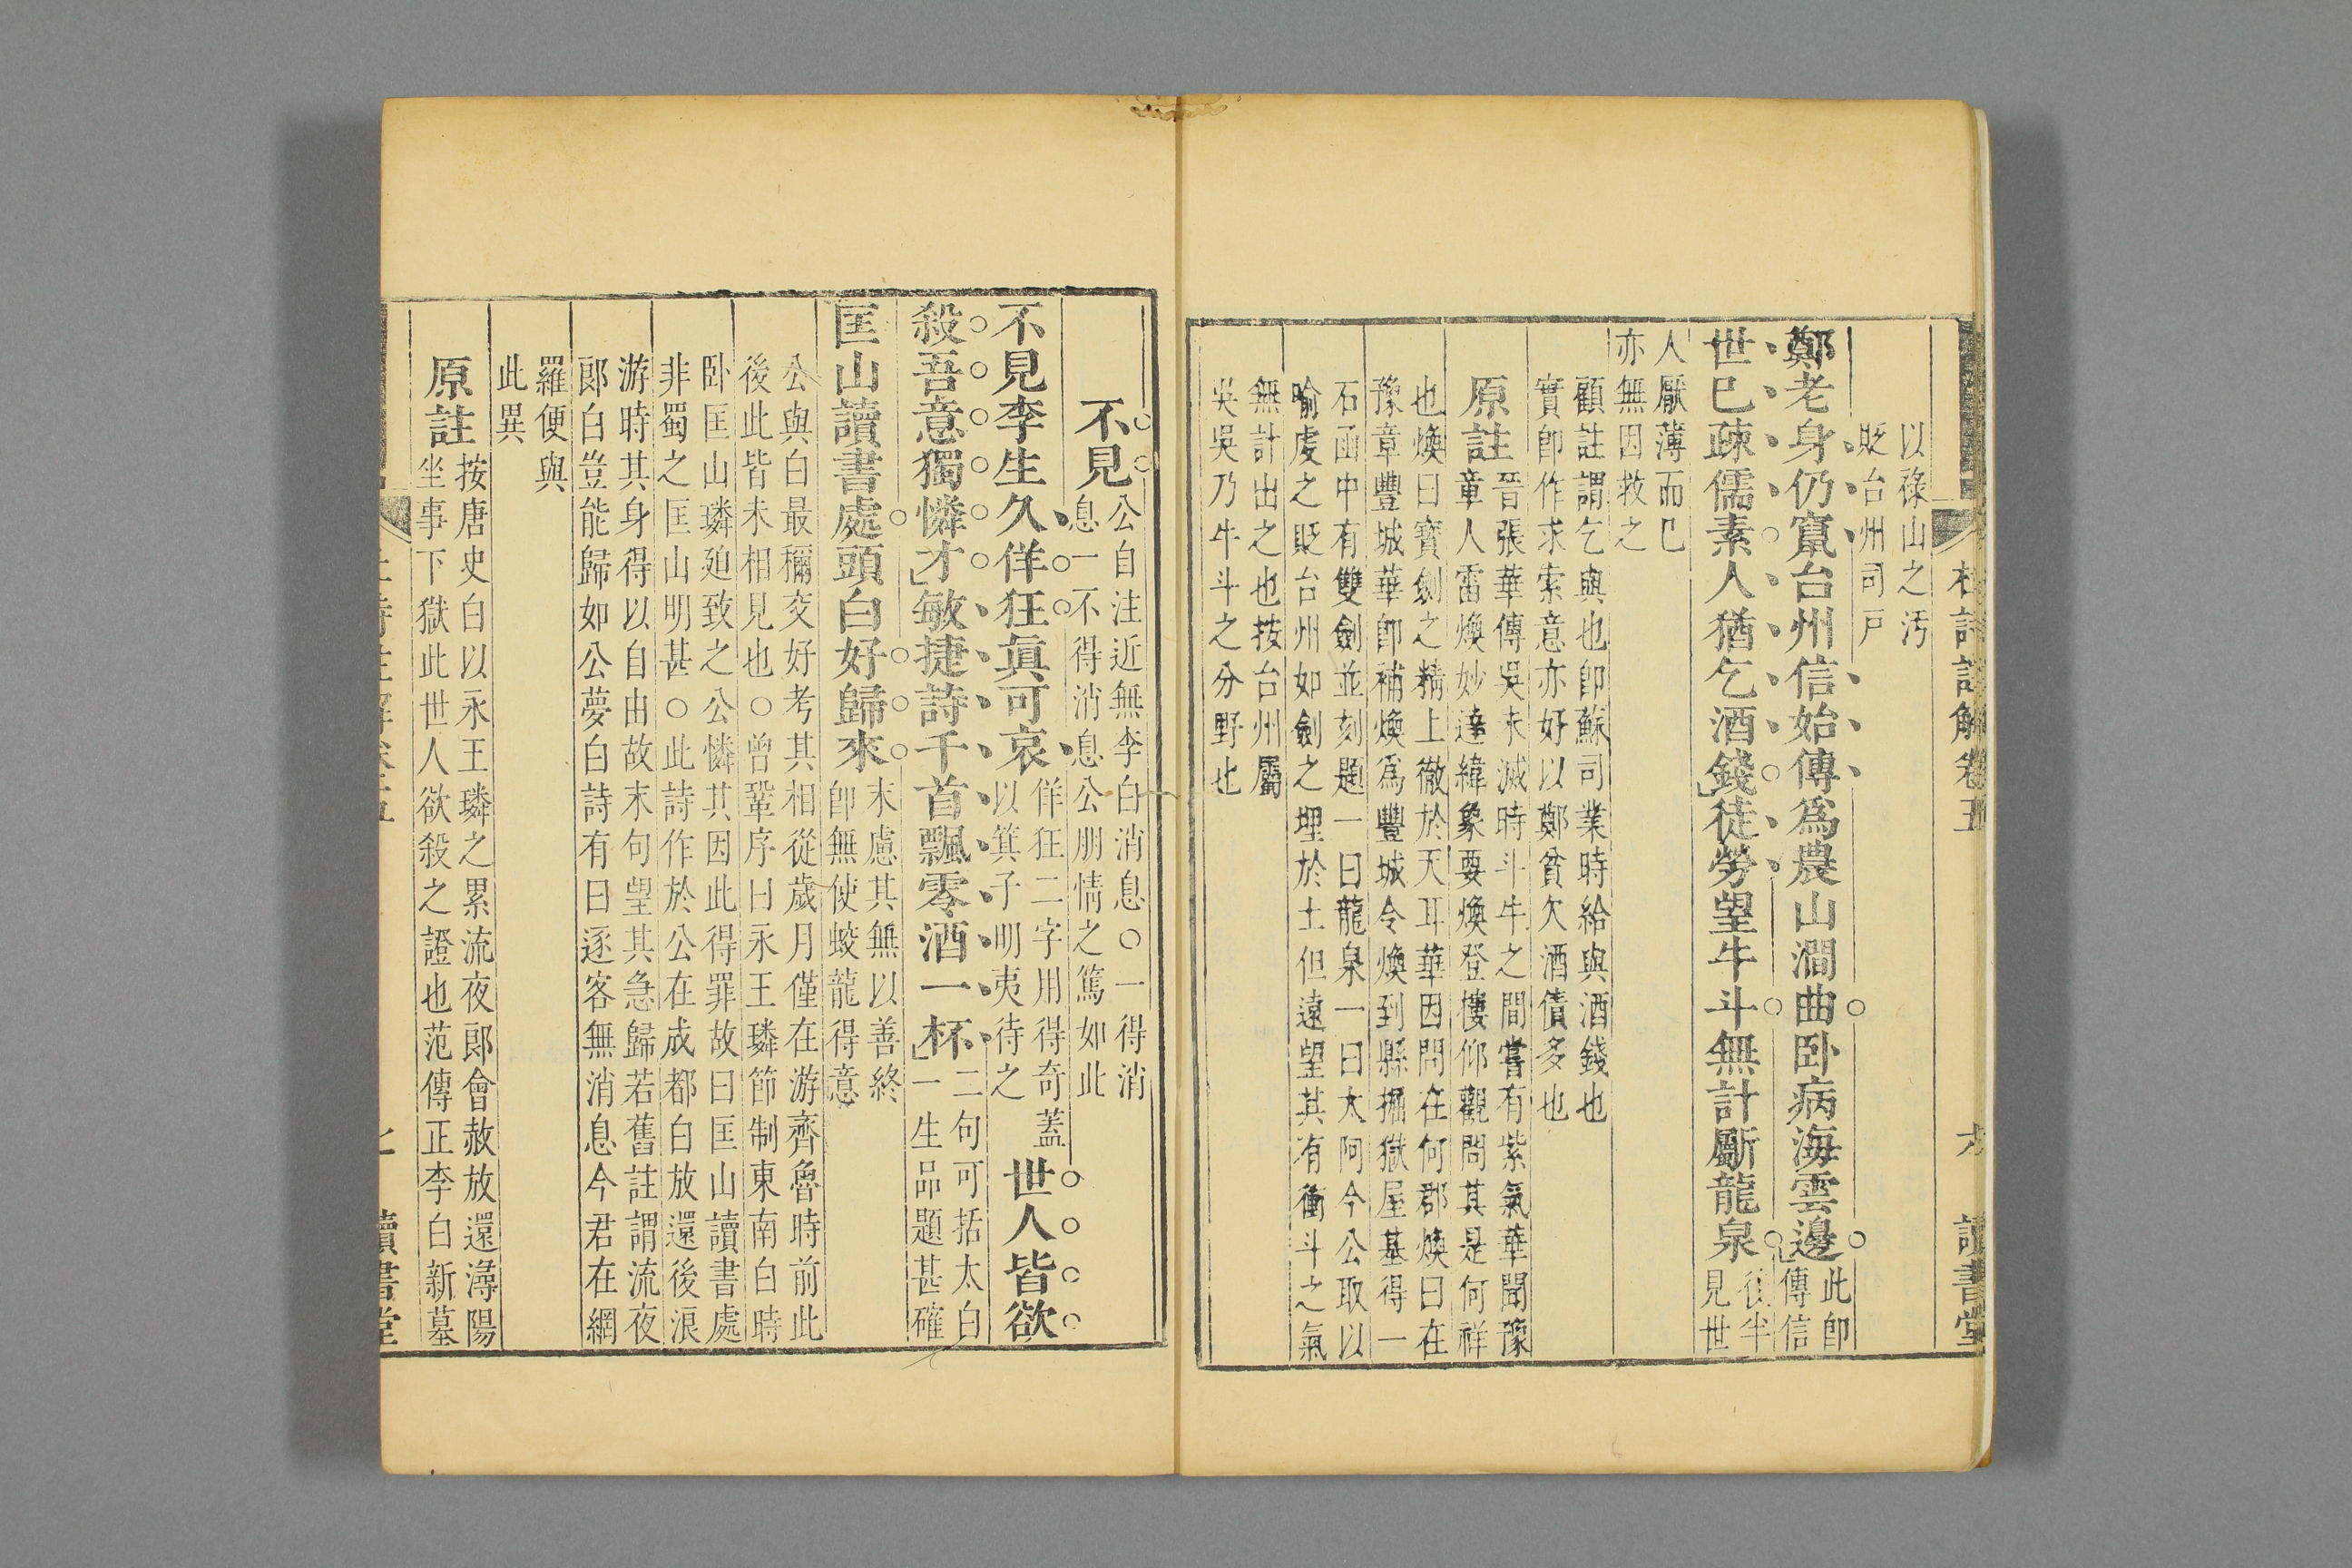 以祿山之汚
貶台州司戸
鄭老身仍竄台州信始傳爲農山澗曲卧病海雲邊
此卽
傳信
世已疎儒素人猶乞酒錢徒勞望牛斗無計斸龍泉
後半
見世
人厭薄而已
亦無因救之
顧註謂乞與也卽蘇司業時給與酒錢也
實卽作求索意亦好以鄭貧欠酒債多也
原註
晉張華傳吳未滅時斗牛之間嘗有紫氣華聞豫
章人雷煥妙達緯象要煥登樓仰觀問其是何祥
也煥曰寶劍之精上徹於天耳華因問在何郡煥曰在
豫章豐城華卽補煥爲豐城令煥到縣掘獄屋基得一
石函中有雙劍並刻題一曰龍泉一曰太阿今公取以
喻虔之貶台州如劍之埋於土但遠望其有衝斗之氣
無計出之也按台州屬
吳吳乃牛斗之分野也
不見
公自注近無李白消息○一得消
息一不得消息公朋情之篤如此
不見李生久佯狂眞可哀
佯狂二字用得奇蓋
以箕子明夷待之
世人皆欲
殺吾意獨憐才敏捷詩千首飄零酒一杯
二句可括太白
一生品題甚確
匡山讀書處頭白好歸來
末慮其無以善終
卽無使蛟龍得意
公與白最稱交好考其相從歲月僅在游齊魯時前此
後此皆未相見也○曾鞏序曰永王璘節制東南白時
卧匡山璘廹致之公憐其因此得罪故曰匡山讀書處
非蜀之匡山明甚○此詩作於公在成都白放還後浪
游時其身得以自由故末句望其急歸若舊註謂流夜
郞白豈能歸如公夢白詩有曰逐客無消息今君在網
羅便與
此異
原註
按唐史白以永王璘之累流夜郞會赦放還潯陽
坐事下獄此世人欲殺之證也范傳正李白新墓
讀書堂